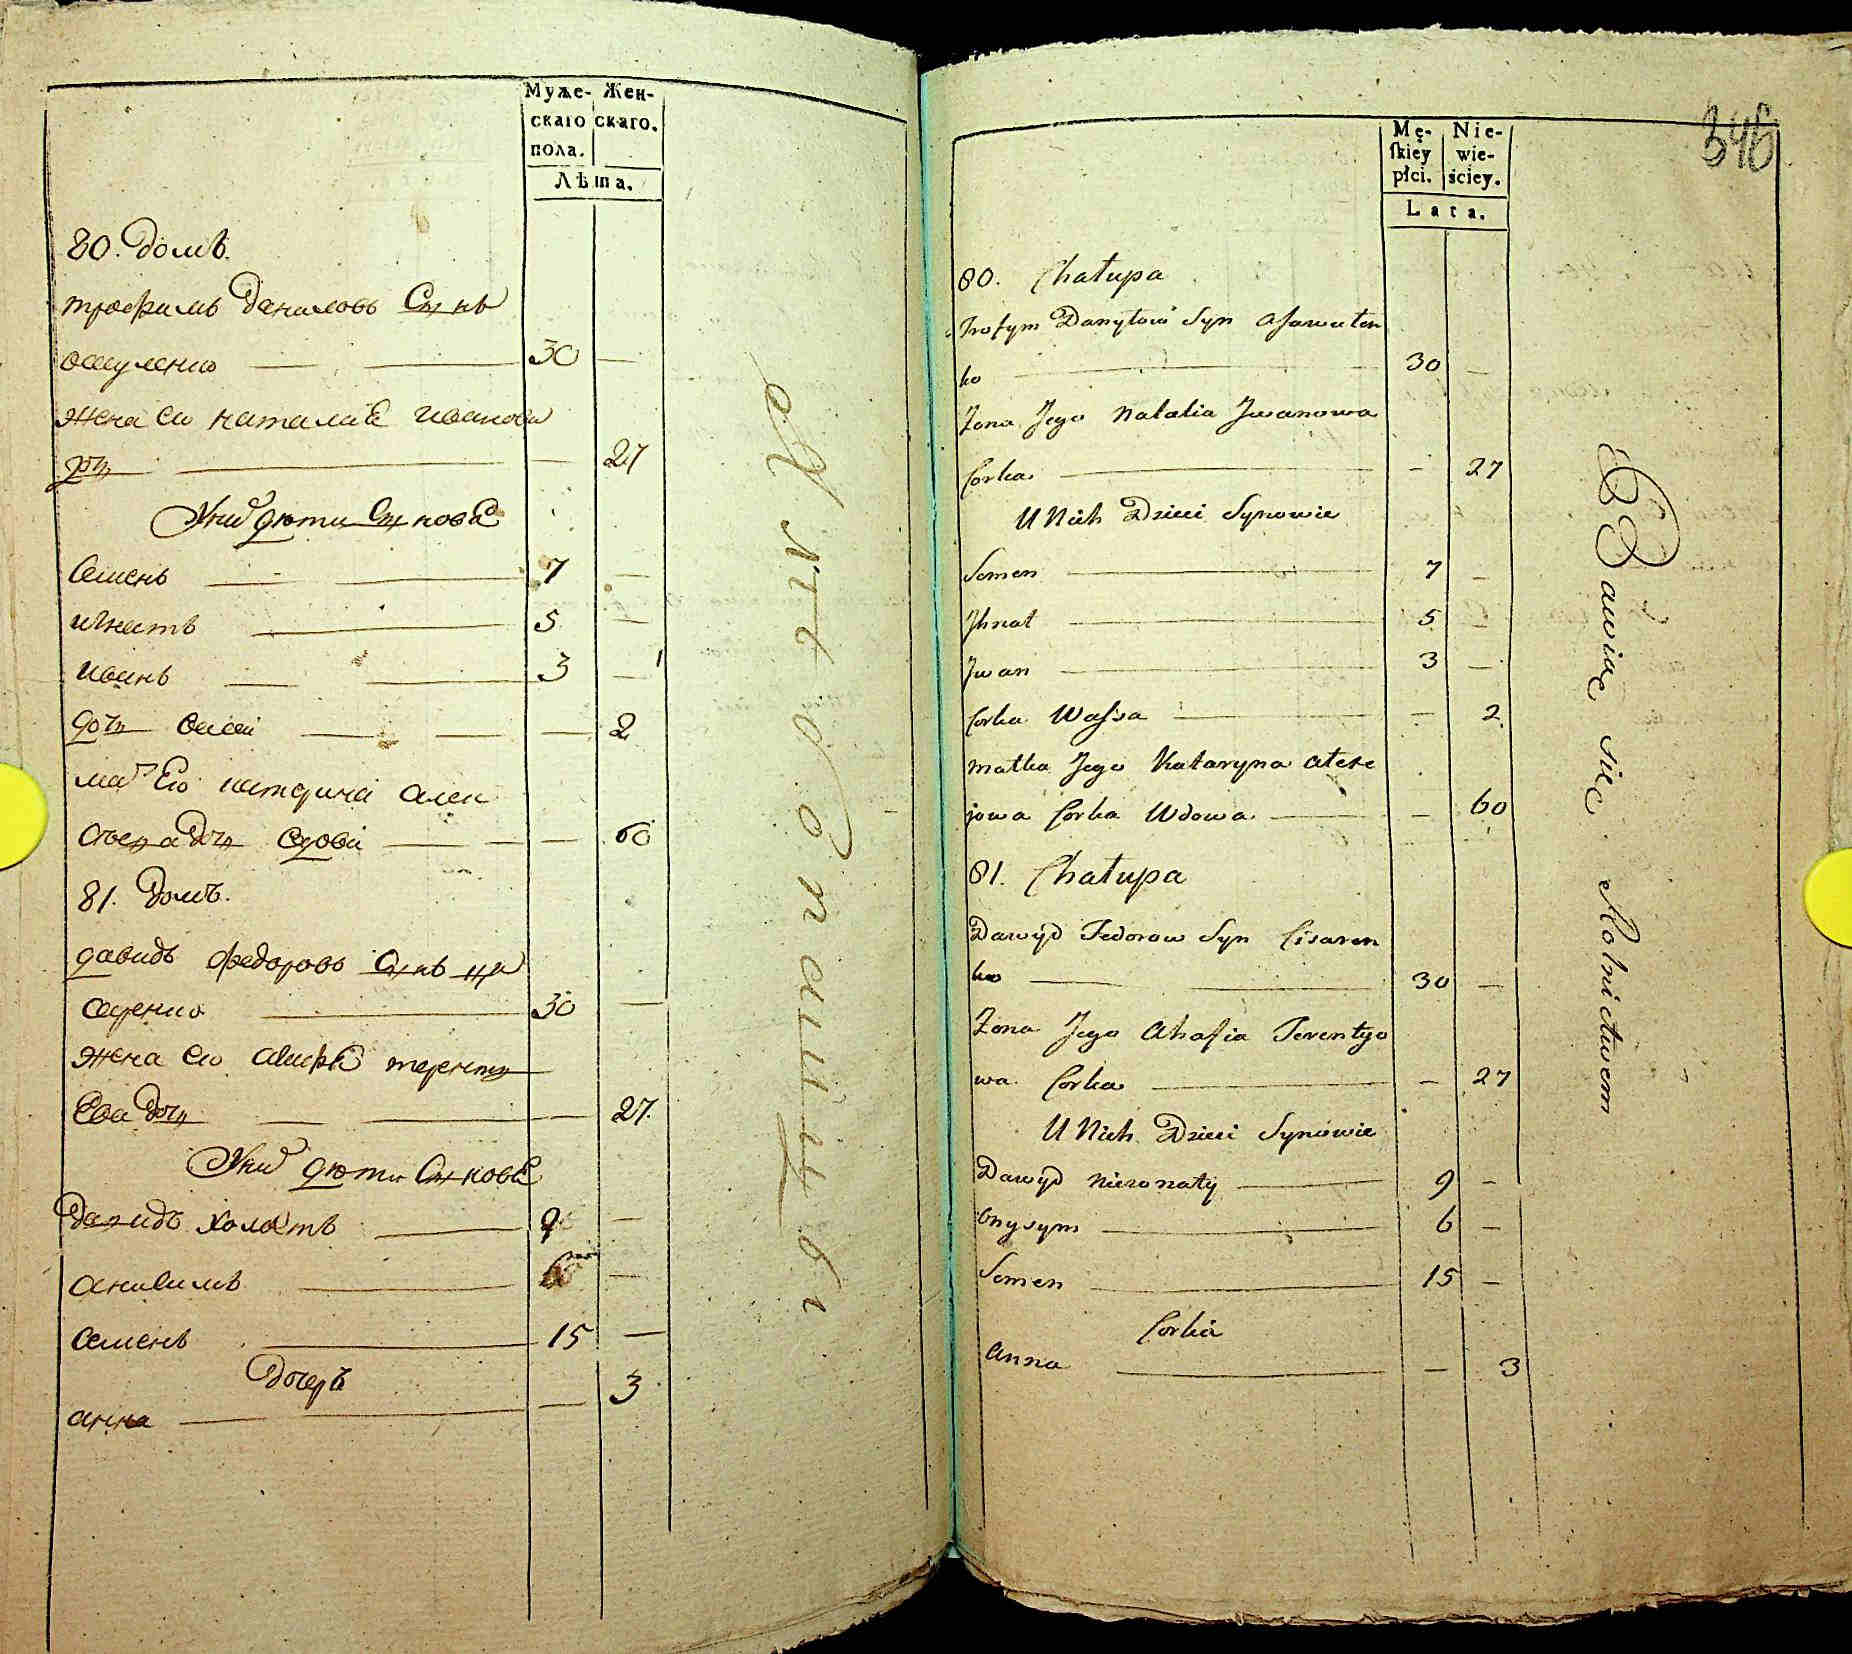 Муже- Жен-
скаго скаго.
пола.
Лѣта.
80. домъ.
трофимъ даниловъ Сынъ
30 —
жена его наталиѣ иванова
дочь — 27
У нихъ дѣти Сыновѣ
Семенъ 7 —
игнатъ 5 —
иванъ 3 —
дочь васса — 2
мать Его катерина алек
сѣева дочь вдова — 60
81. домъ.
давидъ федоровъ Сынъ ца
саренко 30 —
жена его агафѣ терентъ
Ева дочь — 27.
У нихъ дѣти Сыновѣ
давидъ холостъ 9 —
анисимъ 6 —
семенъ 15 —
дочеръ
анна — 3
Хлебопашцы
346
Mę- Nie-
skiey wie-
płci. ściey.
Lata.
80. Chałupa
Trofym Danyłow Syn
ko 30 —
Zona Jego Natalia Jwanowa
Corka — 27
U Nich Dzieci Synowie
Semen 7 —
Jhnat 5 —
Jwan 3 —
Corka Wassa — 2
matka Jego Kataryna ałexe
jowa Corka Wdowa — 60
81. Chałupa
Dawyd Fedorow Syn Cisaren
ko 30 —
Zona Jego Ahafia Terentyo
wa Corka — 27
U Nich Dzieci Synowie
Dawyd niezonaty 9 —
Onysym 6 —
Semen 15 —
Corka
Anna — 3
Bawiąc się Rolnictwem